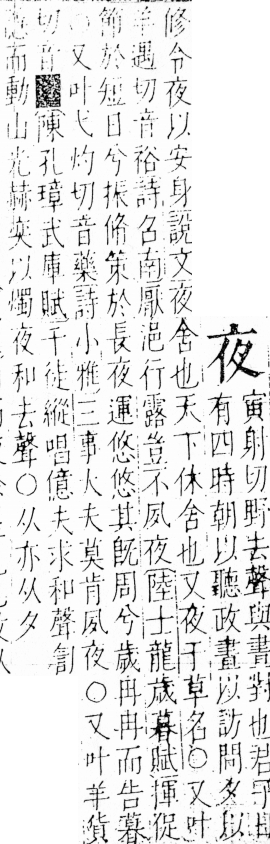 夜
寅射切野去聲與晝對也君子日
有四時朝以聽政晝以訪問夕以
修令夜以安身說文夜舍也天下休舍也又夜干草名○又叶
羊遇切音裕詩召南厭浥行露豈不夙夜陸士龍歲暮賦揮促
節於短日兮振脩策於長夜運悠悠其旣周兮歲冉冉而告暮
○又叶弋灼切音藥詩小雅三事大夫莫肯夙夜○又叶羊貨
切音陳孔璋武庫賦千徒縱唱億夫求和聲訇
而動山光赫奕以燭夜和去聲○从亦从夕